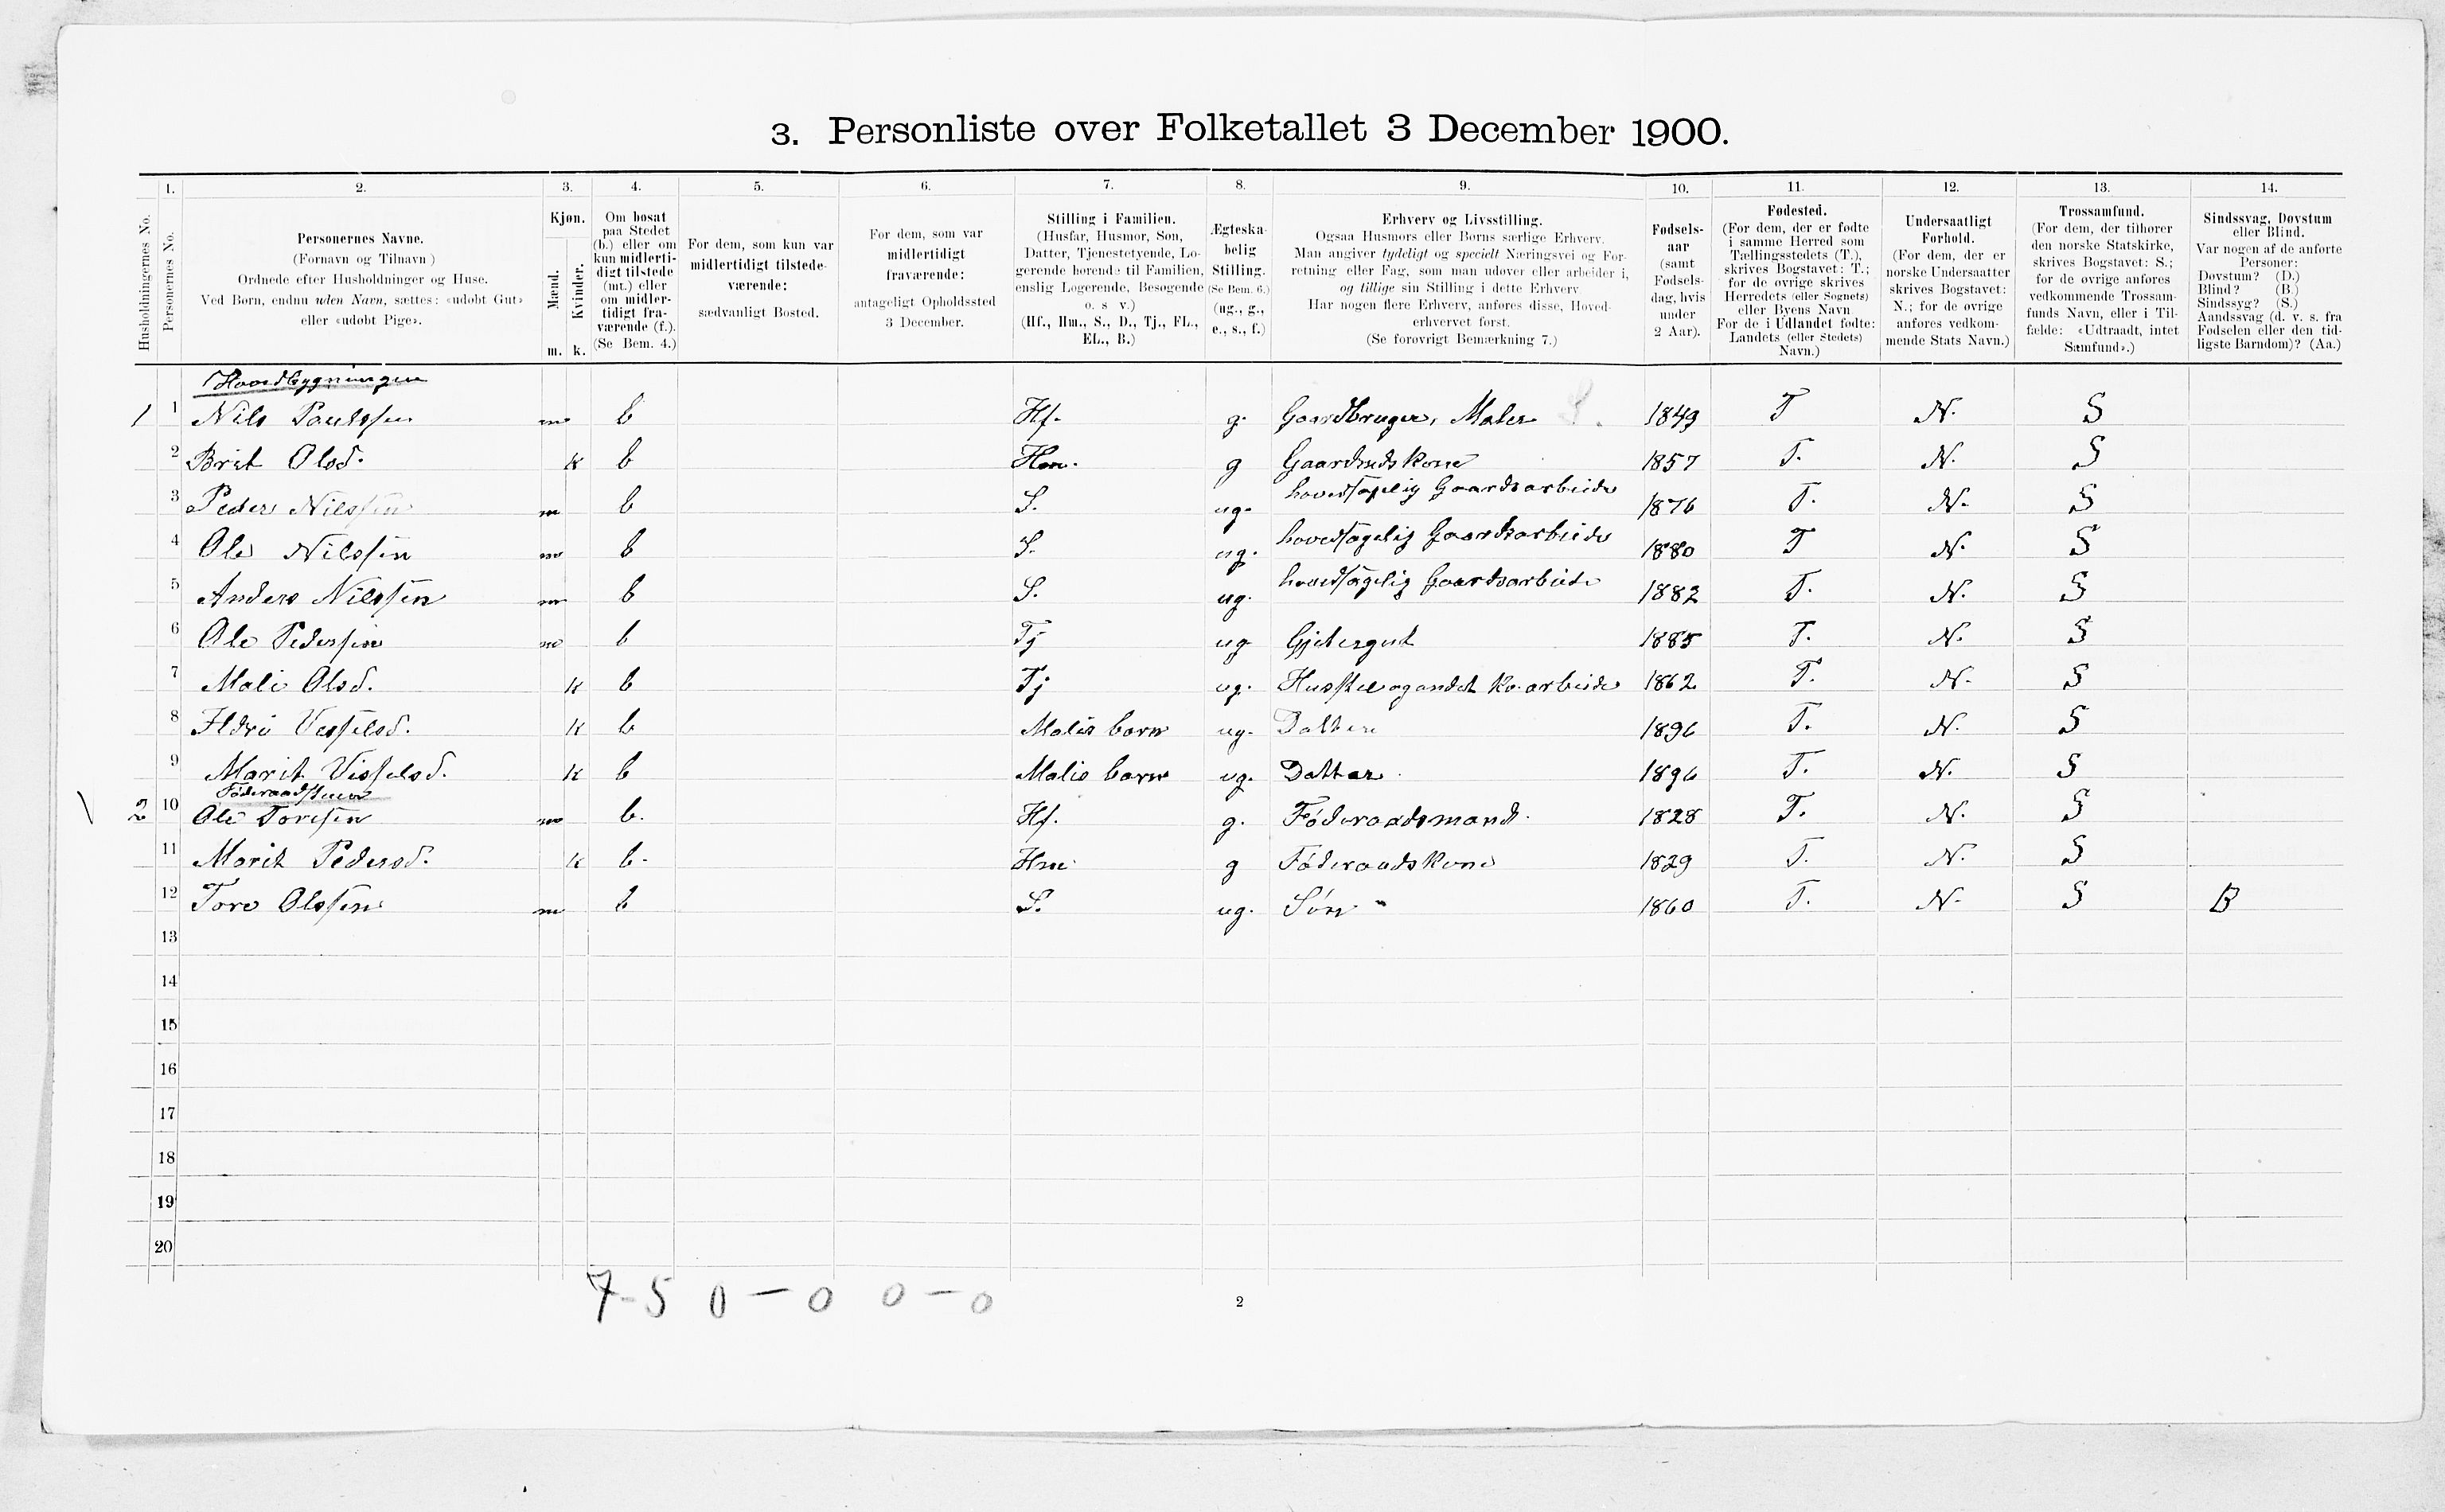 3. Personliste over Folketallet 3 December 1900.
1. 2. 3. 4. 5. 6. 7. 8. 9. 10. 11. 12. 13. 14.
Husholdningernes No.
Personernes No.
Personernes Navne.
(Fornavn og Tilnavn.)
Ordnede efter Husholdninger og Huse.
Ved Børn, endnu uden Navn, sættes: «udøbt Gut»
eller «udøbt Pige».
Kjøn.
Mænd.
Kvinder.
m. k.
Om bosat
paa Stedet
(b.) eller om
kun midlerti-
digt tilstede
(mt.) eller
om midler-
tidigt fra-
værende (f.).
(Se Bem. 4.)
For dem, som kun var
midlertidigt tilstede-
værende:
sædvanligt Bosted.
For dem, som var
midlertidigt
fraværende:
antageligt Opholdssted
3 December.
Stilling i Familien.
(Husfar, Husmor, Søn,
Datter, Tjenestetyende, Lo-
gerende hørende til Familien,
enslig Logerende, Besøgende
o. s. v.)
(Hf., Hm., S., D., Tj., FL.,
EL., B.)
Ægteska-
belig
Stilling.
(Se Bem. 6.)
(ug., g.,
e., s., f.)
Erhverv og Livsstilling.
Ogsaa Husmors eller Børns særlige Erhverv.
Man angiver tydeligt og specielt Næringsvei og For-
retning eller Fag, som man udøver eller arbeider i,
og tillige sin Stilling i dette Erhverv
Har nogen flere Erhverv, anføres disse, Hoved-
erhvervet først.
(Se forøvrigt Bemærkning 7.)
Fødsels-
aar
(samt
Fødsels-
dag, hvis
under
2 Aar).
Fødested.
(For dem, der er fødte
i samme Herred som
Tællingsstedets (T.),
skrives Bogstavet: T.;
for de øvrige skrives
Herredets (eller Sognets)
eller Byens Navn
For de i Udlandet fødte:
Landets (eller Stedets)
Navn.)
Undersaatligt
Forhold.
(For dem, der er
norske Undersaatter
skrives Bogstavet:
N.; for de øvrige
anføres vedkom-
mende Stats Navn.)
Trossamfund.
(For dem, der tilhører
den norske Statskirke,
skrives Bogstavet: S.;
for de øvrige anføres
vedkommende Trossam-
funds Navn, eller i Til-
fælde: «Udtraadt, intet
Samfund».)
Sindssvag, Døvstum
eller Blind.
Var nogen af de anførte
Personer:
Døvstum? (D.)
Blind? (B.)
Sindssyg? (S.)
Aandssvag (d. v. s. fra
Fødselen eller den tid-
ligste Barndom)? (Aa.)
Hovedbygningen
1 1 Nils Paulssen m b Hf. g. Gaardbruger, Maler 1849 T N. S
2 Brit Olsd. k b Hm. g Gaardmdskone 1857 T. N. S
3 Peder Nilssen m b S. ug. hovedsagelig Gaardsarbeide 1876 T. N. S
4 Ole Nilssen m b S. ug. hovedsagelig Gaardsarbeide 1880 T N. S
5 Anders Nilssen m b S. ug. hovedsagelig Gaardsarbeide 1882 T. N. S
6 Ole Pederssen m b Tj ug Gjetergut 1885 T. N. S
7 Mali Olsd. k b Tj ug. Husstel og andet kv. arbeide 1862 T. N. S
8 Ildri Vesselsd. k b Malis barn ug. Datter 1896 T. N. S
9 Marit Vesselsd. k b Malis barn ug. Datter 1896 T. N. S
Føderaadstuen
2 10 Ole Toressen m b. Hf. g. Føderaadsmand. 1828 T. N. S
11 Marit Pedersd. k b. Hm g Føderaadskone 1829 T. N. S
12 Tore Olssen m b S. ug. Søn 1860 T. N. S B
13
14
15
16
17
18
19
20
7-5 0-0 0-0
2